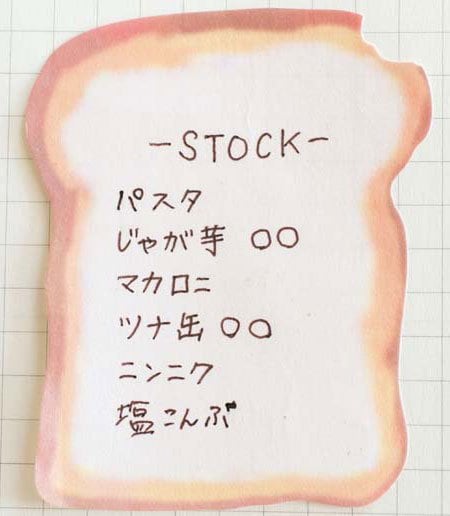 -STOCK-
パスタ
じゃが芋 ○○
マカロニ
ツナ缶 ○○
ニンニク
塩こんぶ